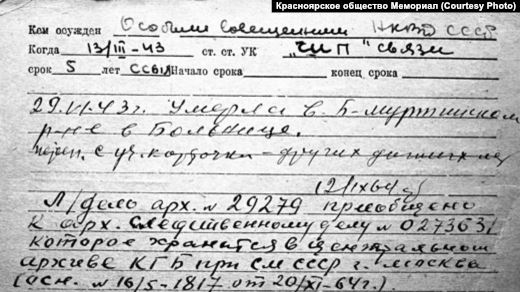 Красноярское общество Мемориал (Courtesy Photo)
Кем осужден Особым совещанием НКВД СССР
Когда 13/III-43 ст. ст. УК "ШП" связи
срок 5 лет ссыл Начало срока конец срока
29.VI.43г. Умерла в Б-муртинском
р-не в Больнице.
с уч. карточки - других данных нет
12/IX64
Л/дело арх. № 29279 приобщено
к арх. следственному делу №
которое хранится в центральном
архиве КГБ при СМ СССР г. Москва
(осн. № 16/5-1817 от 20/XI-64г.).